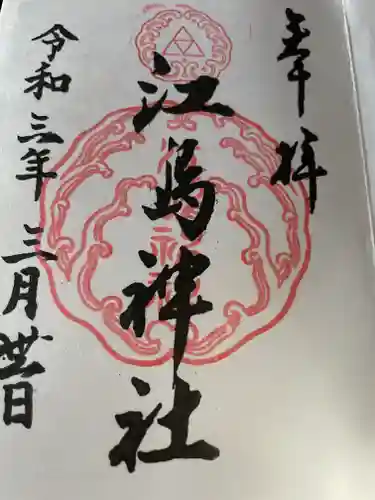 奉拝
江島神社
令和三年三月丗日